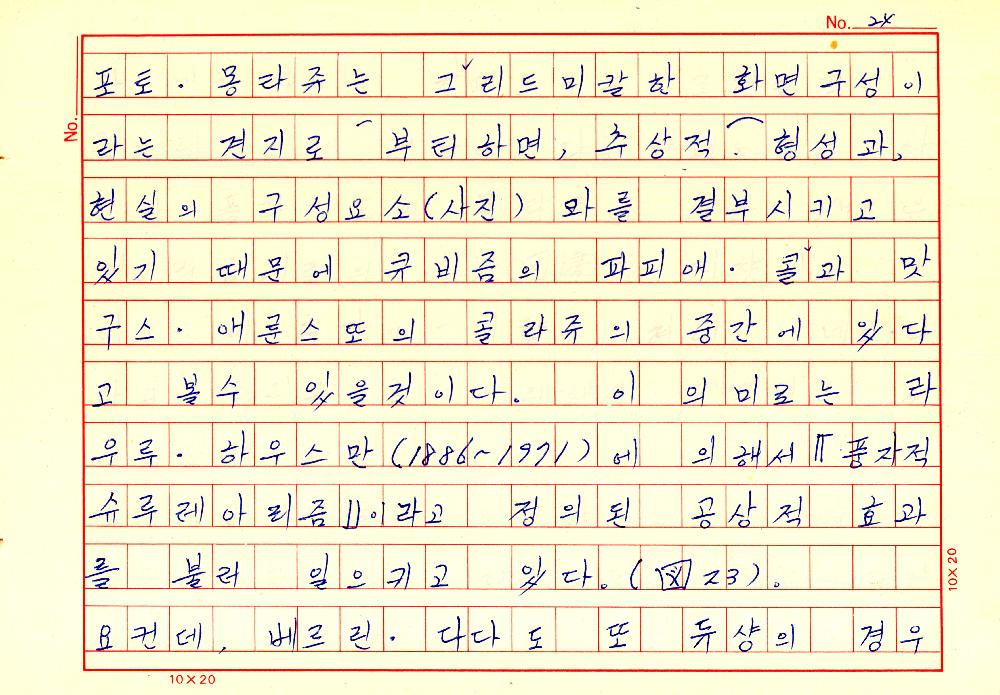 No. 24
No.
포토·몽타쥬는 그리드미칼한 화면구성이
라는 견지로 부터하면, 추상적. 형성과,
현실의 구성요소(사진) 와를 결부시키고
있기 때문에 큐비즘의 파피애·콜과 맛
구스·애룬스또의 콜라쥬의 중간에 있다
고 볼수 있을것이다. 이 의미로는 라
우루·하우스만(1886~1971)에 의해서 『풍자적
슈루레아리즘』이라고 정의된 공상적 효과
를 불러 일으키고 있다.(図 23).
요컨데, 베르린·다다도 또 듀샹의 경우
10×20
10×20